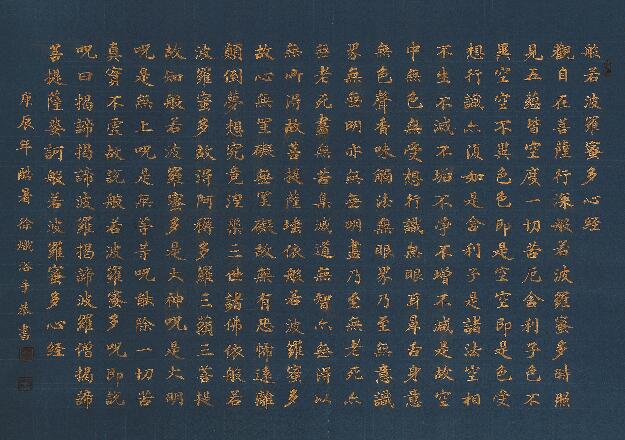 般若波羅蜜多心經
觀自在菩薩行深般若波羅蜜多時照
見五蘊皆空度一切苦厄舍利子色不
異空空不異色色即是空空即是色受
想行識亦復如是舍利子是諸法空相
不生不滅不垢不淨不增不減是故空
中無色無受想行識無眼耳鼻舌身意
無色聲香味觸法無眼界乃至無意識
界無無明亦無無明盡乃至無老死亦
無老死盡無苦集滅道無智亦無得以
無所得故菩提薩埵依般若波羅蜜多
故心無罣礙無罣礙故無有恐怖遠離
顛倒夢想究竟涅槃三世諸佛依般若
波羅蜜多故得阿耨多羅三藐三菩提
故知般若波羅蜜多是大神呪是大明
呪是無上呪是無等等呪能除一切苦
真實不虛故說般若波羅蜜多呪即說
呪曰揭諦揭諦波羅揭諦波羅僧揭諦
菩提薩婆訶般若波羅蜜多心經
庚辰年酷暑徐浴手恭書